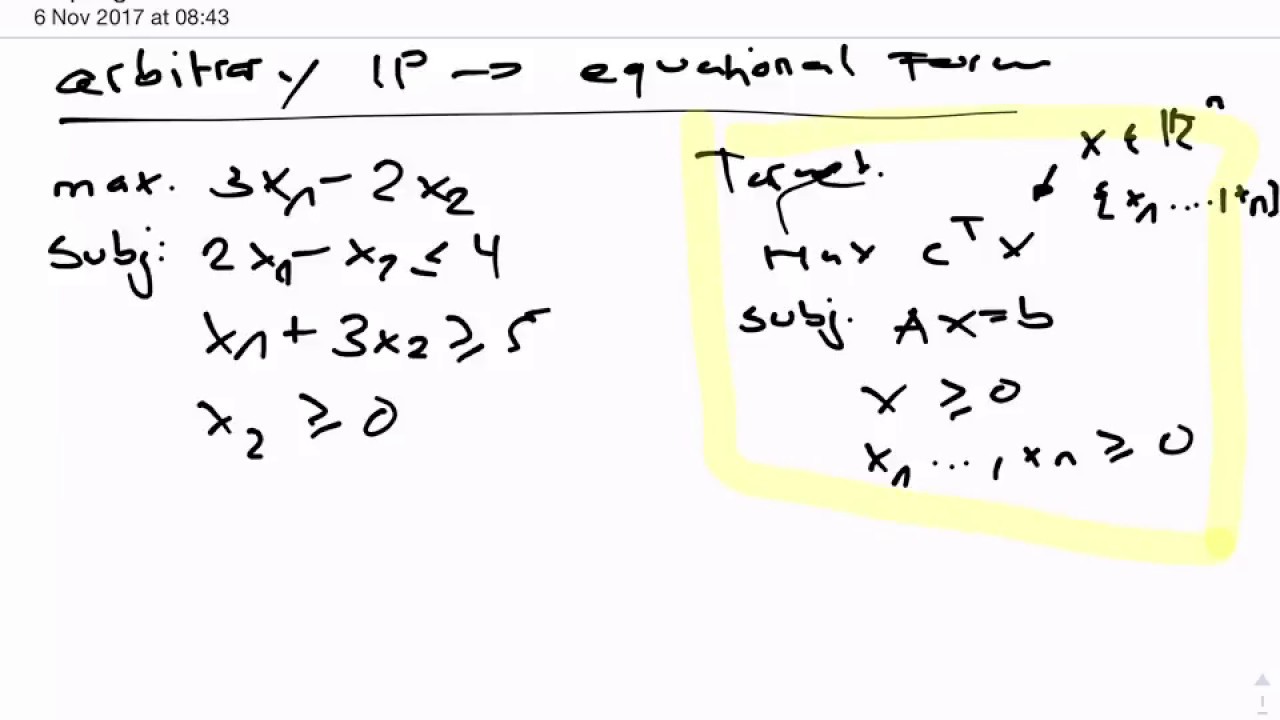 6 Nov 2017 at 08:43
arbitrary LP → equational Form
max. 3x₁ - 2x₂
Subj: 2x₁ - x₂ ≤ 4
x₁ + 3x₂ ≥ 5
x₂ ≥ 0
Target.
x ∈ ℝⁿ
{x₁ ...., xₙ}
Max cᵀx
subj. Ax = b
x ≥ 0
x₁ ..., xₙ ≥ 0